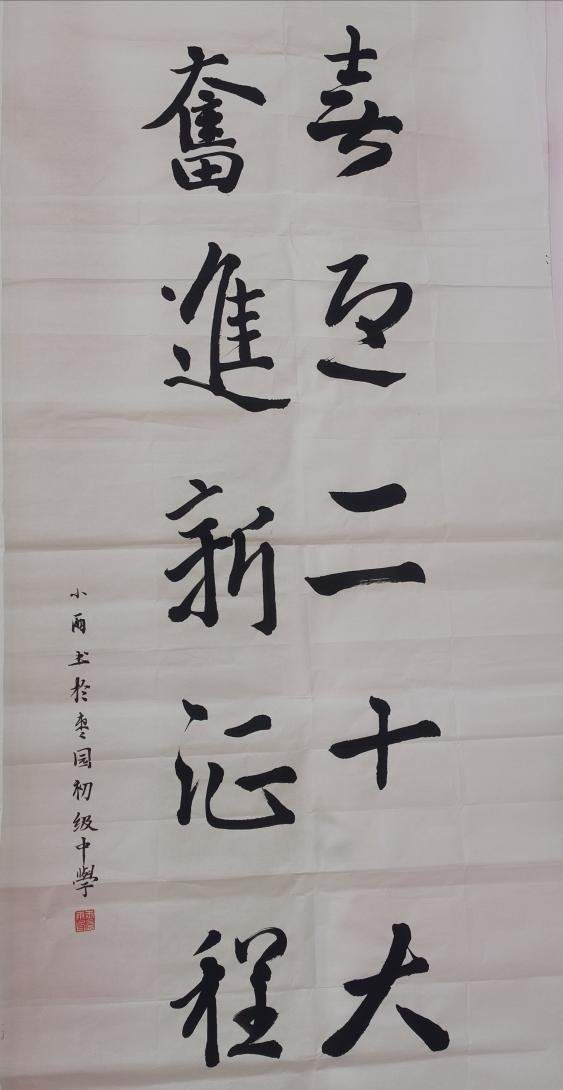 喜迎二十大
奮進新征程
小雨书於枣园初级中學